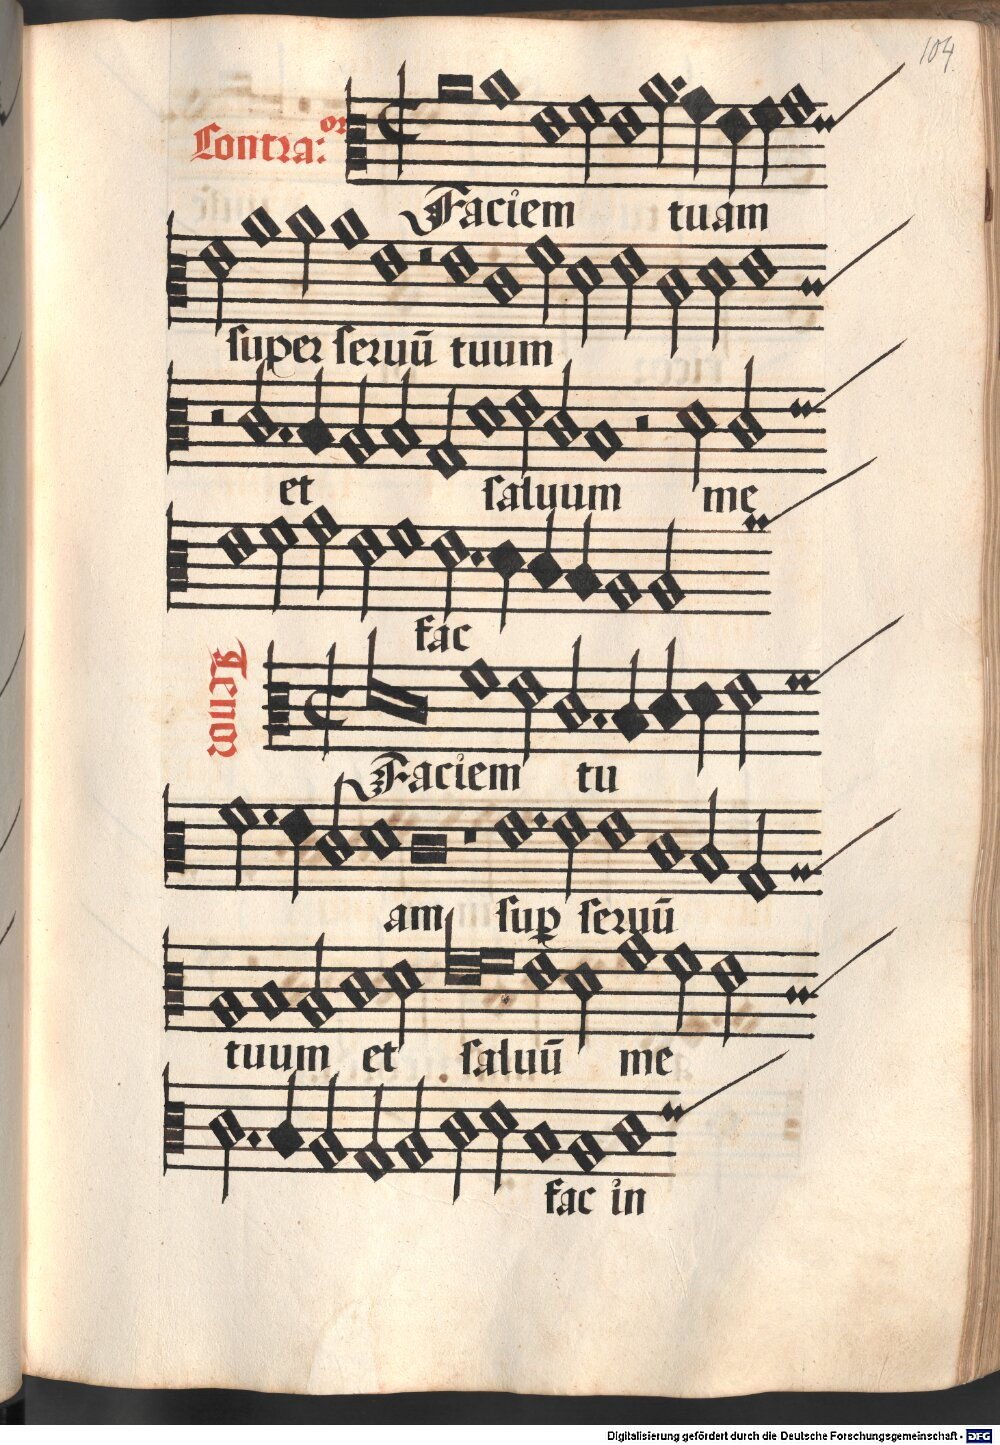 104
Contra:or
Faciem tuam
super seruū tuum
et saluum me
fac
Tenor
Faciem tu
am sup seruū
tuum et saluū me
fac in
Digitalisierung gefördert durch die Deutsche Forschungsgemeinschaft - DFG